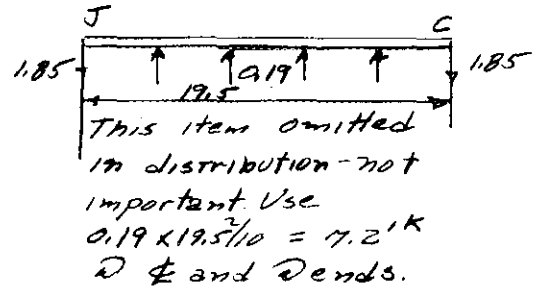 J C
1.85 0.19 1.85
19.5
This item omitted
in distribution - not
important. Use
0.19 x 19.5²/10 = 7.2'K
@ ℄ and @ ends.